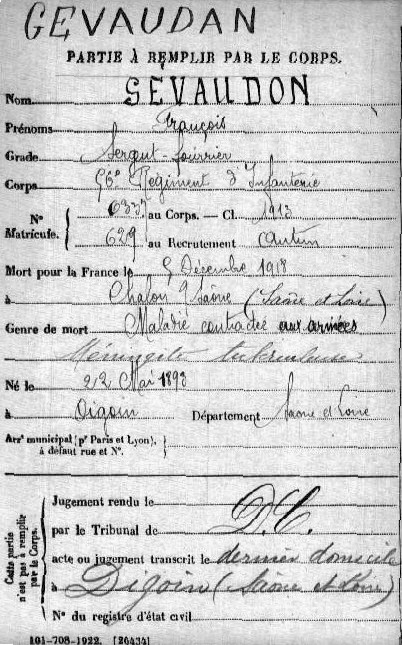 GEVAUDAN
PARTIE À REMPLIR PAR LE CORPS.
Nom GEVAUDON
Prénoms François
Grade Sergent-fourrier
Corps 56e Régiment d'Infanterie
N° Matricule. { 6337 au Corps. — Cl. 1913
629 au Recrutement Autun
Mort pour la France le 5 Décembre 1918
à Chalon s/ Saône (Saône et Loire)
Genre de mort Maladie contractée aux armées
Méningite tuberculeuse
Né le 22 Mai 1893
à Digoin Département Saone et Loire
Arrt municipal (pr Paris et Lyon),
à défaut rue et N°.
Cette partie n'est pas à remplir par le Corps.
Jugement rendu le
par le Tribunal de D.C.
acte ou jugement transcrit le dernier domicile
à Digoin (Saône et Loire)
N° du registre d'état civil
101-708-1922. [26434]